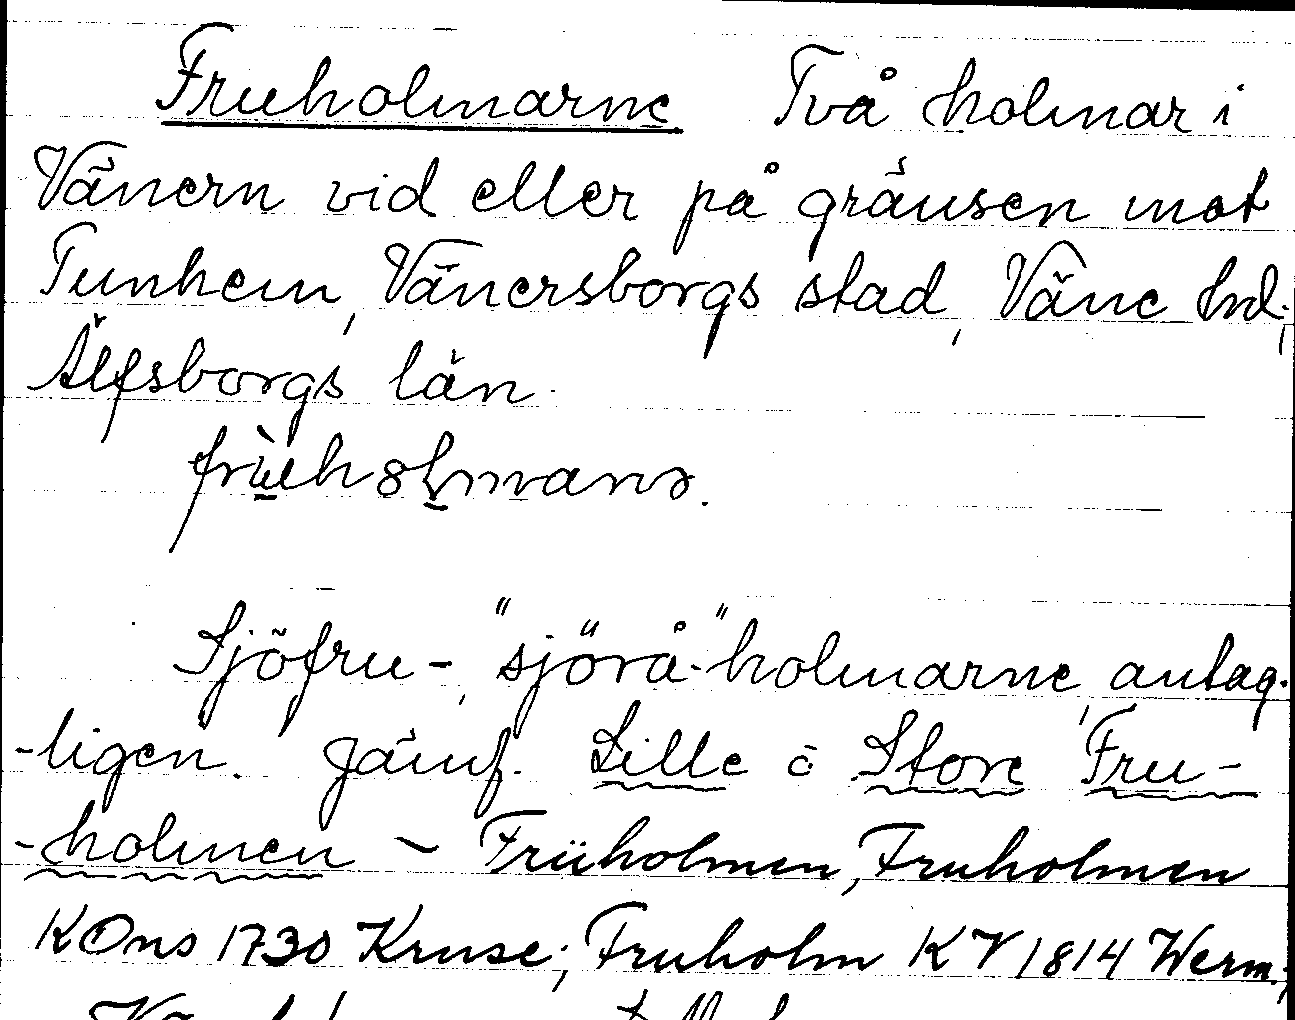 Fruholmarne Två holmar i
Vänern vid eller på gränsen mot
Tunhem, Vänersborgs stad, Väne hd;
Älfsborgs län.
Sjöfru-, "sjörå"-holmarne, antag-
-ligen. Jämf. Lille o Store Fru-
-holmen ~ Früholmen, Fruholmen
KOns 1730 Kruse; Fruholm KV 1814 Werm.;